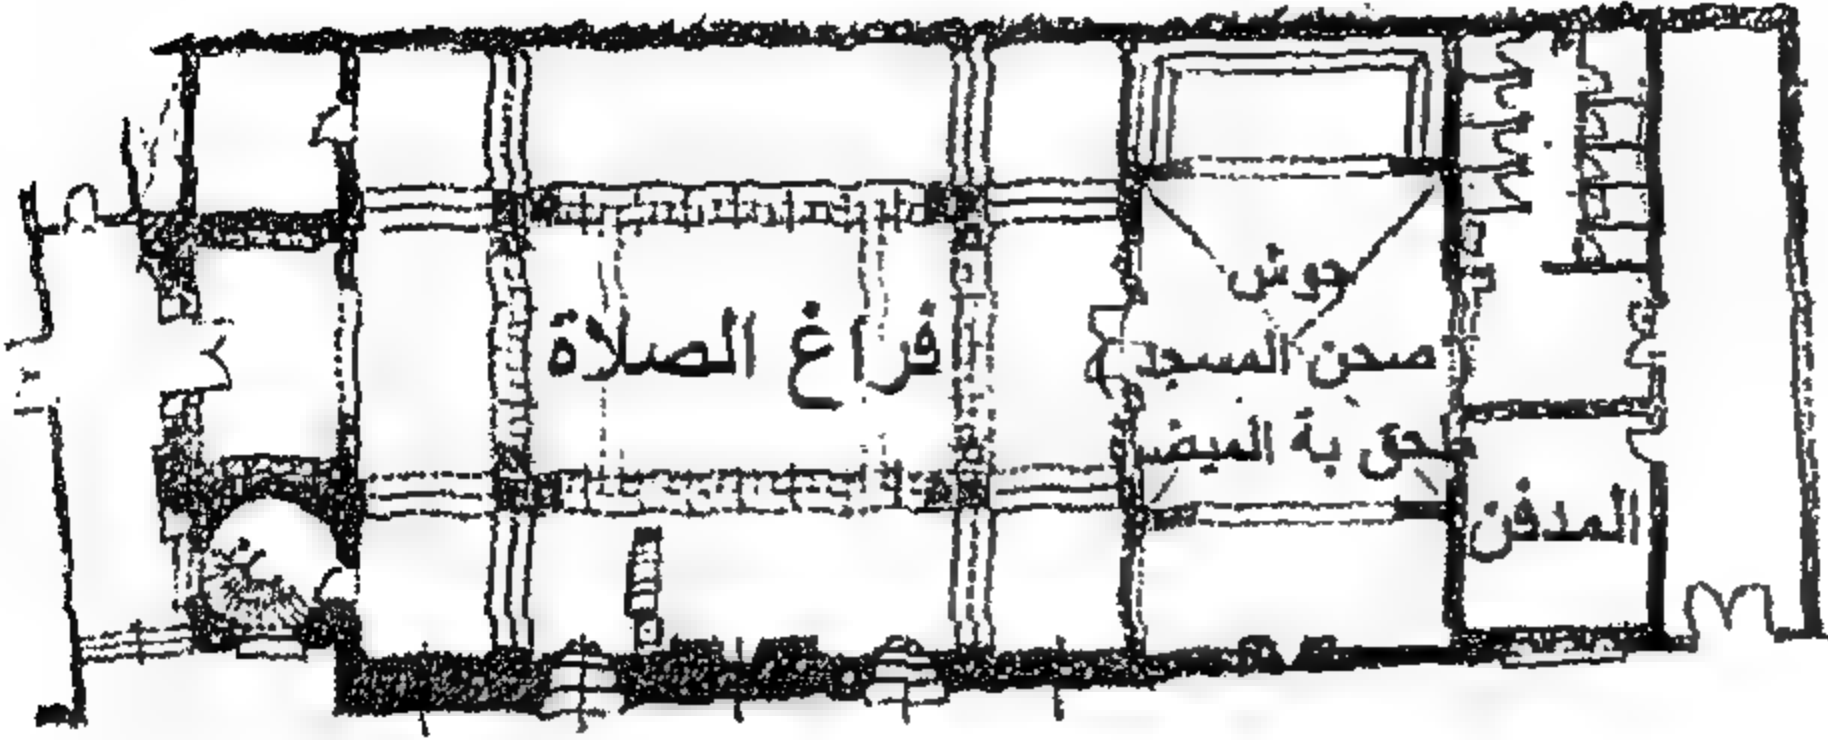 فراغ الصلاة
حوش
صحن المسجد
محق بة الميض
المدفن